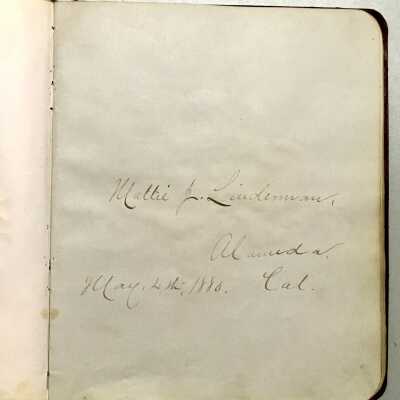 Mattie J. Lindeman.
Alameda.
May. 4th, 1880. Cal.